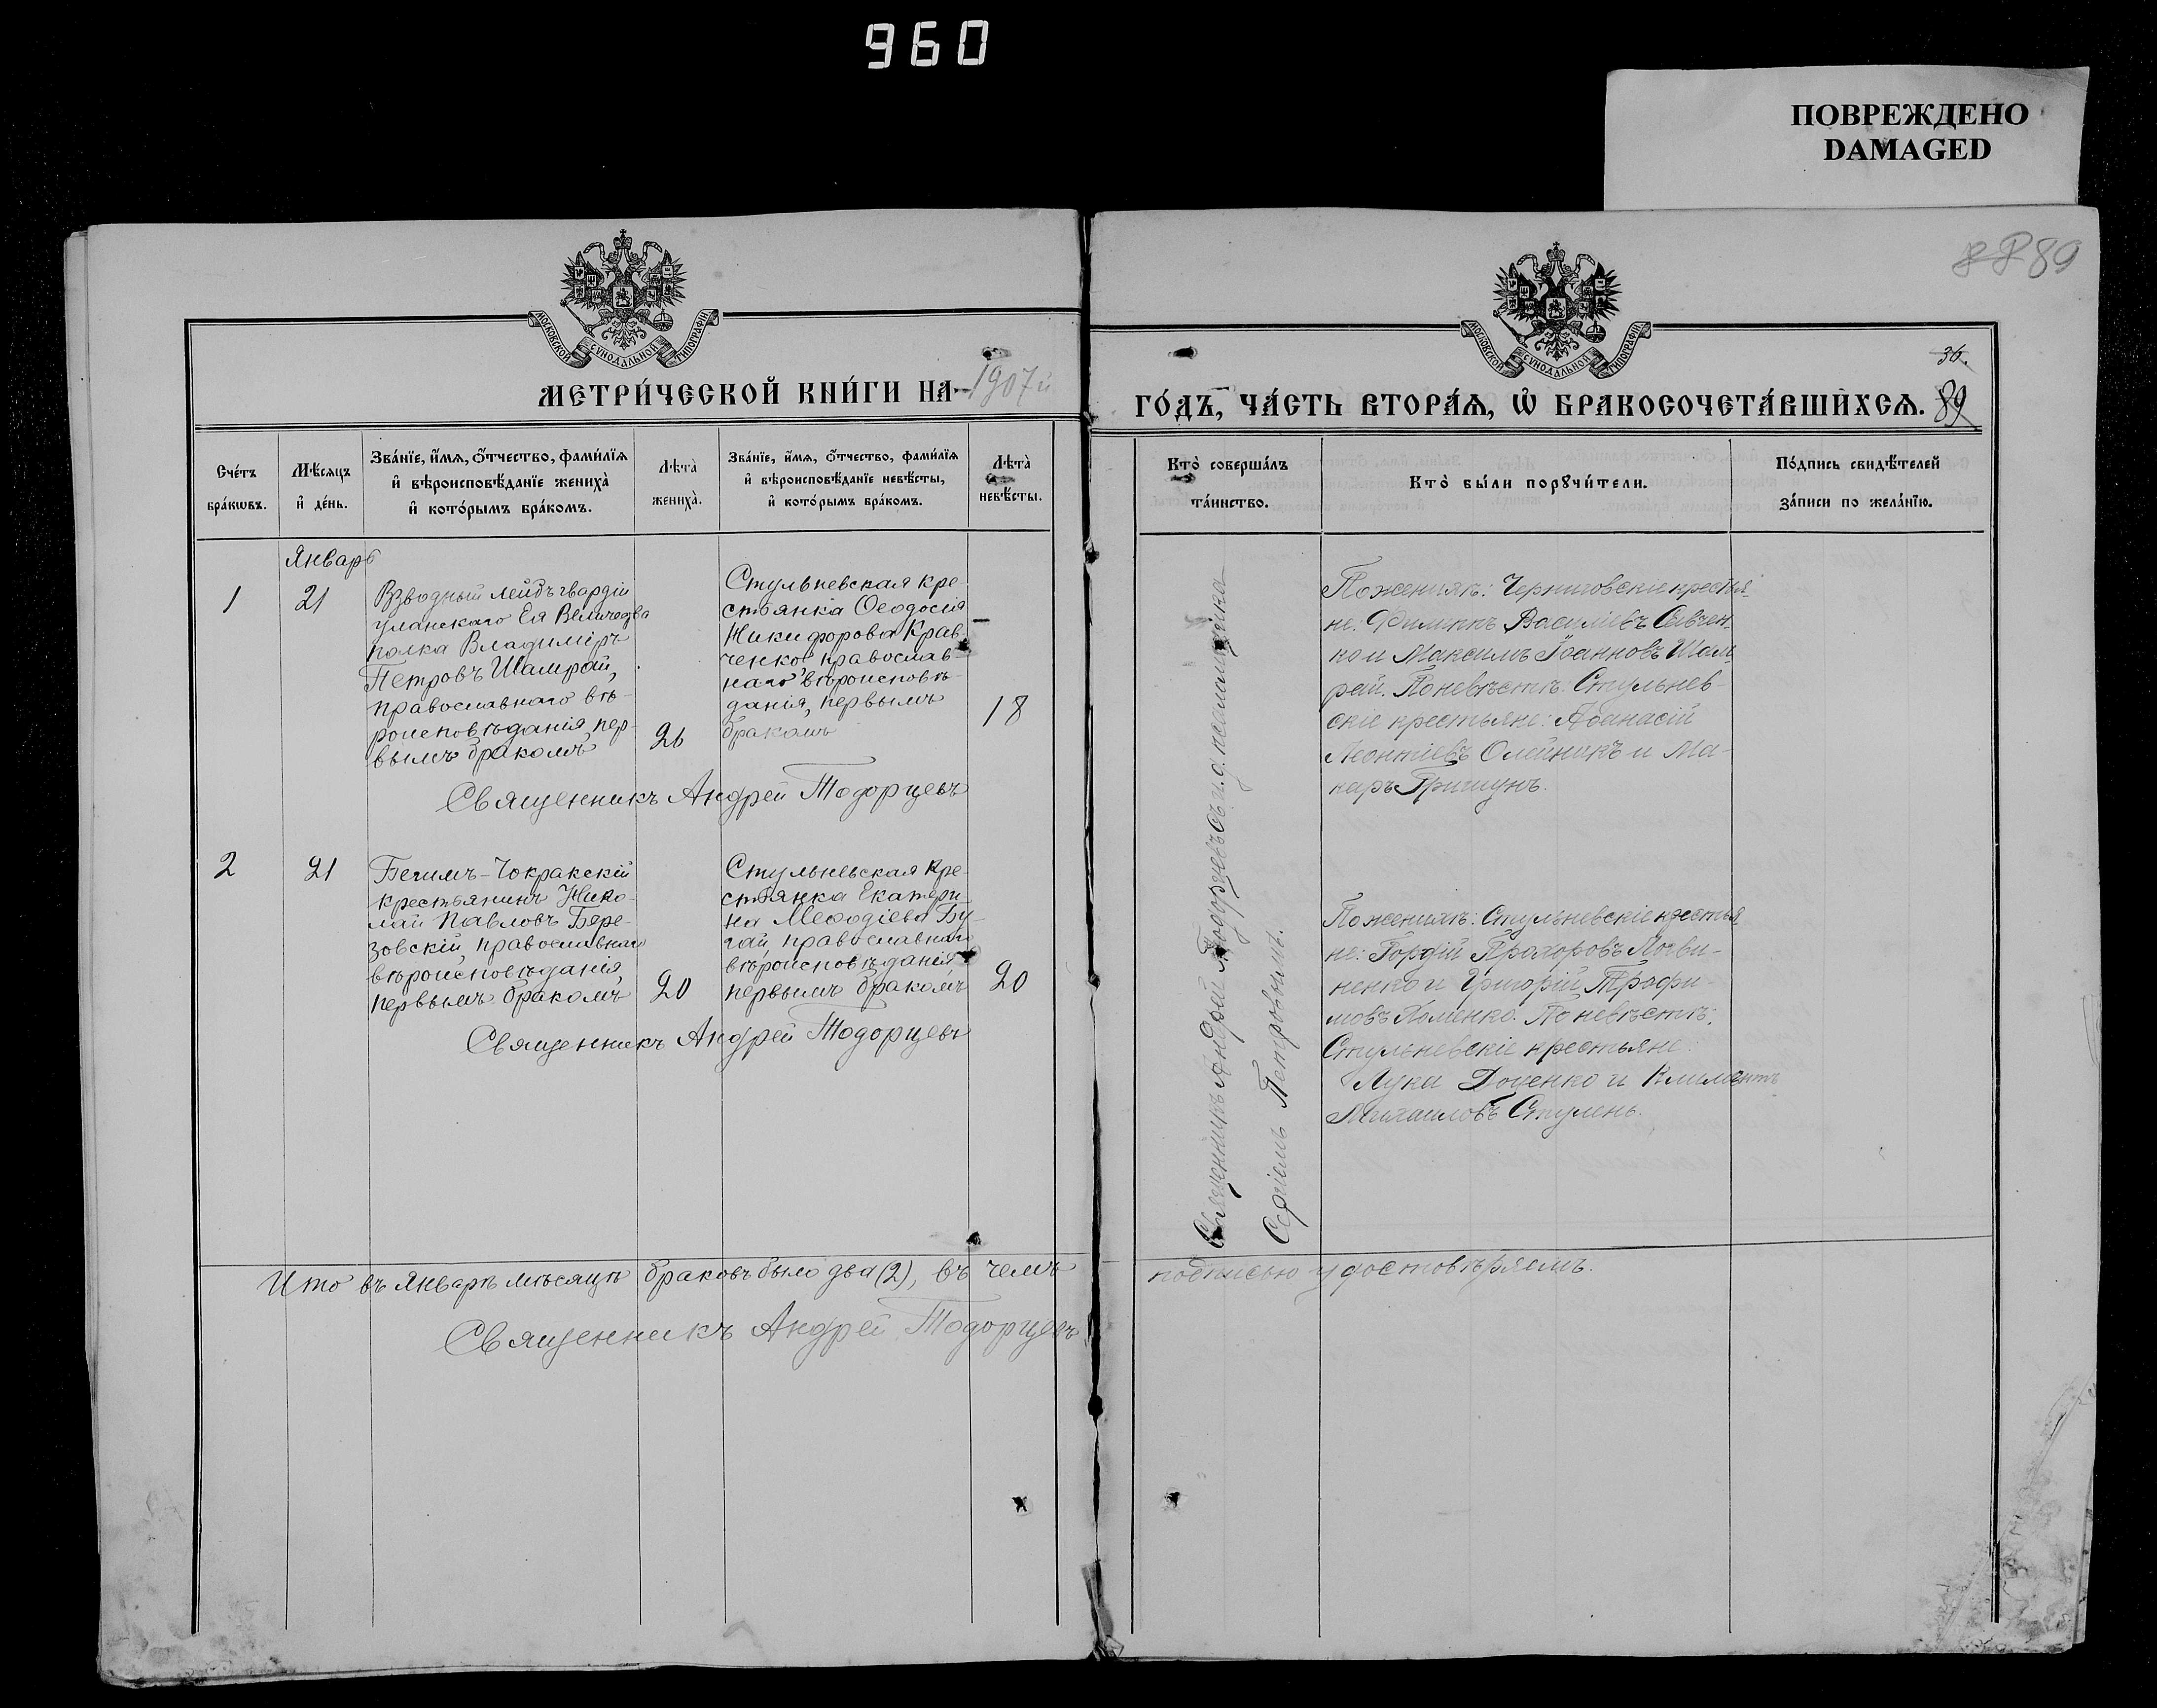 960
ПОВРЕЖДЕНО
DAMAGED
89
МОСКОВСКОЙ СѴНОДАЛЬНОЙ ТИПОГРАФІИ
МЕТРИ́ЧЕСКОЙ КНИ́ГИ НА 1907й
Сче́тъ бра́кѡвъ.
Мѣ́сяцъ и҆ де́нь.
Зва́нїе, и҆́мѧ, ѻ҆́тчество, фами́лїѧ
и҆ вѣроисповѣ́данїе жениха̀
и҆ кото́рымъ бра́комъ.
Лѣта̀ жениха̀.
Зва́нїе, и҆́мѧ, ѻ҆́тчество, фами́лїѧ
и҆ вѣроисповѣ́данїе невѣ́сты,
и҆ кото́рымъ бра́комъ.
Лѣта̀ невѣ́сты.
Январь
1
21
Взводный лейбъ гвардіи
уланскаго Ея Величества
полка Владиміръ
Петровъ Шамрай,
православнаго вѣ-
роисповѣданія, пер-
вымъ бракомъ
26
Стульневская кре-
стьянка Ѳеодосія
Никифорова Крав-
ченко православ-
наго вѣроисповѣ-
данія, первымъ
бракомъ
18
Священникъ Андрей Тодорцевъ
2
21
Бегимъ-Чокракскій
крестьянинъ Нико-
лай Павловъ Бере-
зовскій, православнаго
вѣроисповѣданія,
первымъ бракомъ
20
Стульневская кре-
стьянка Екатери-
на Меѳодіева Бу-
гай, православнаго
вѣроисповѣданія
первымъ бракомъ
20
Священникъ Андрей Тодорцевъ
Что въ Январѣ мѣсяцѣ браковъ было два (2), въ чемъ
Священникъ Андрей Тодорцевъ
МОСКОВСКОЙ СѴНОДАЛЬНОЙ ТИПОГРАФІИ
36.
ГО́ДЪ, ЧА́СТЬ ВТОРА́Ѧ, Ѡ҆ БРАКОСОЧЕТА́ВШИХСѦ. 89
Кто̀ соверша́лъ
та́инство.
Кто̀ бы́ли порꙋчи́тели.
По́дпись свидѣ́телей
за́писи по жела́нїю.
Священникъ Андрей Тодорцевъ съ и.д. псаломщика
Сергіемъ Петровымъ.
По женихѣ: Черниговскіе крестья-
не: Филиппъ Василіевъ Савчен-
ко и Максимъ Іоанновъ Шам-
рай. По невѣстѣ: Стульнев-
скіе крестьяне: Аѳанасій
Леонтіевъ Олейникъ и Ма-
каръ Гришунъ.
По женихѣ: Стульневскіе крестья-
не: Гордій Прохоровъ Логви-
ненко и Григорій Трофи-
мовъ Хоменко. По невѣстѣ:
Стульневскіе крестьяне:
Лука Доценко и Климентъ
Михаиловъ Стулень.
подписью удостовѣряемъ.